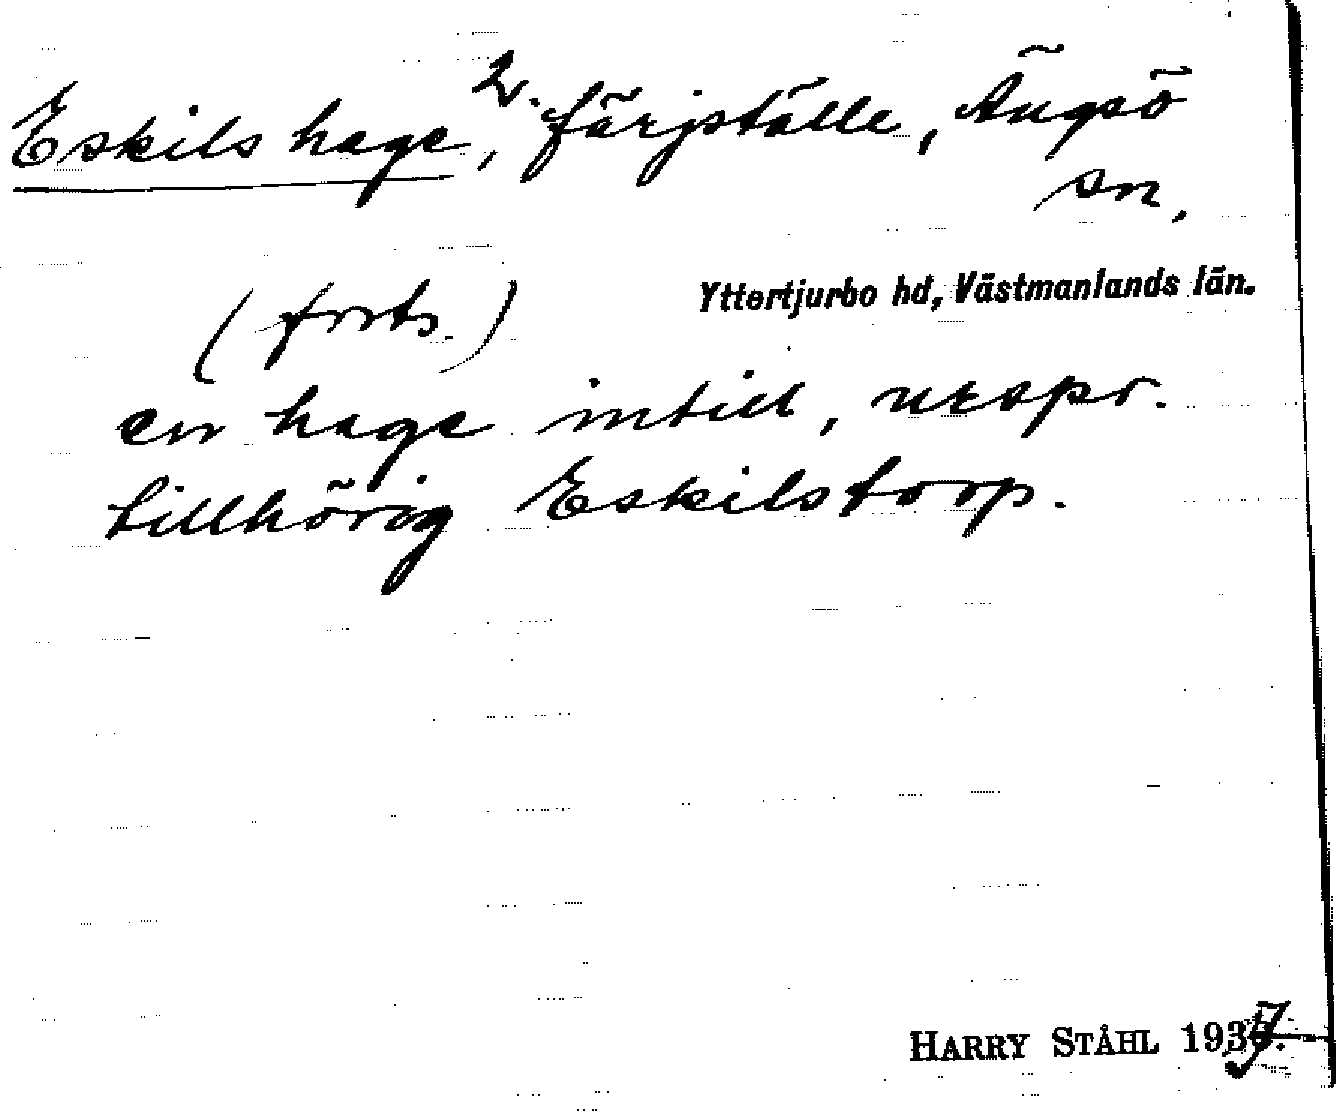 Eskils hage, 2. färjställe, Ängsö
sn,
Yttertjurbo hd, Västmanlands län.
(forts.)
en hage intill, urspr.
tillhörig Eskilstorp.
HARRY STÅHL 1937